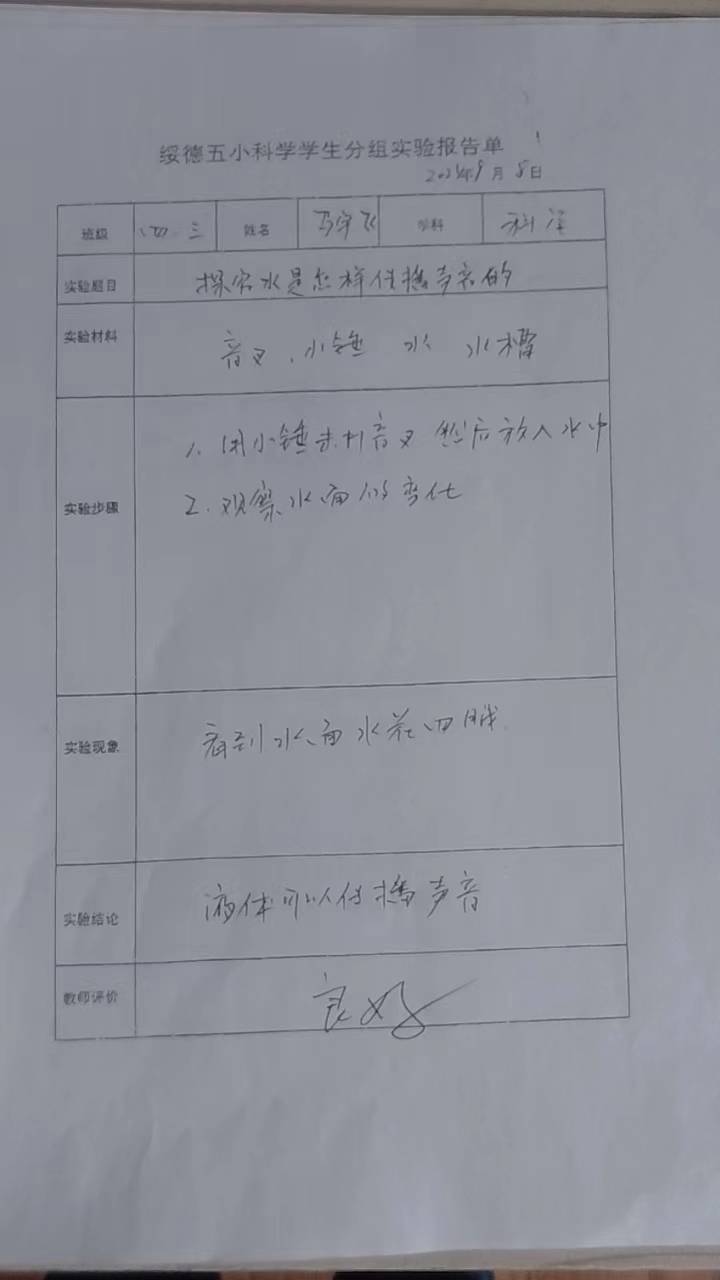 绥德五小科学学生分组实验报告单
9月8日
班级 四.三 姓名 马宇飞 学科 科学
实验题目 探究水是怎样传播声音的
实验材料 音叉、小锤 水 水槽
实验步骤
1. 用小锤击打音叉然后放入水中
2. 观察水面的变化
实验现象 看到水面水花四溅.
实验结论 液体可以传播声音
教师评价 良好